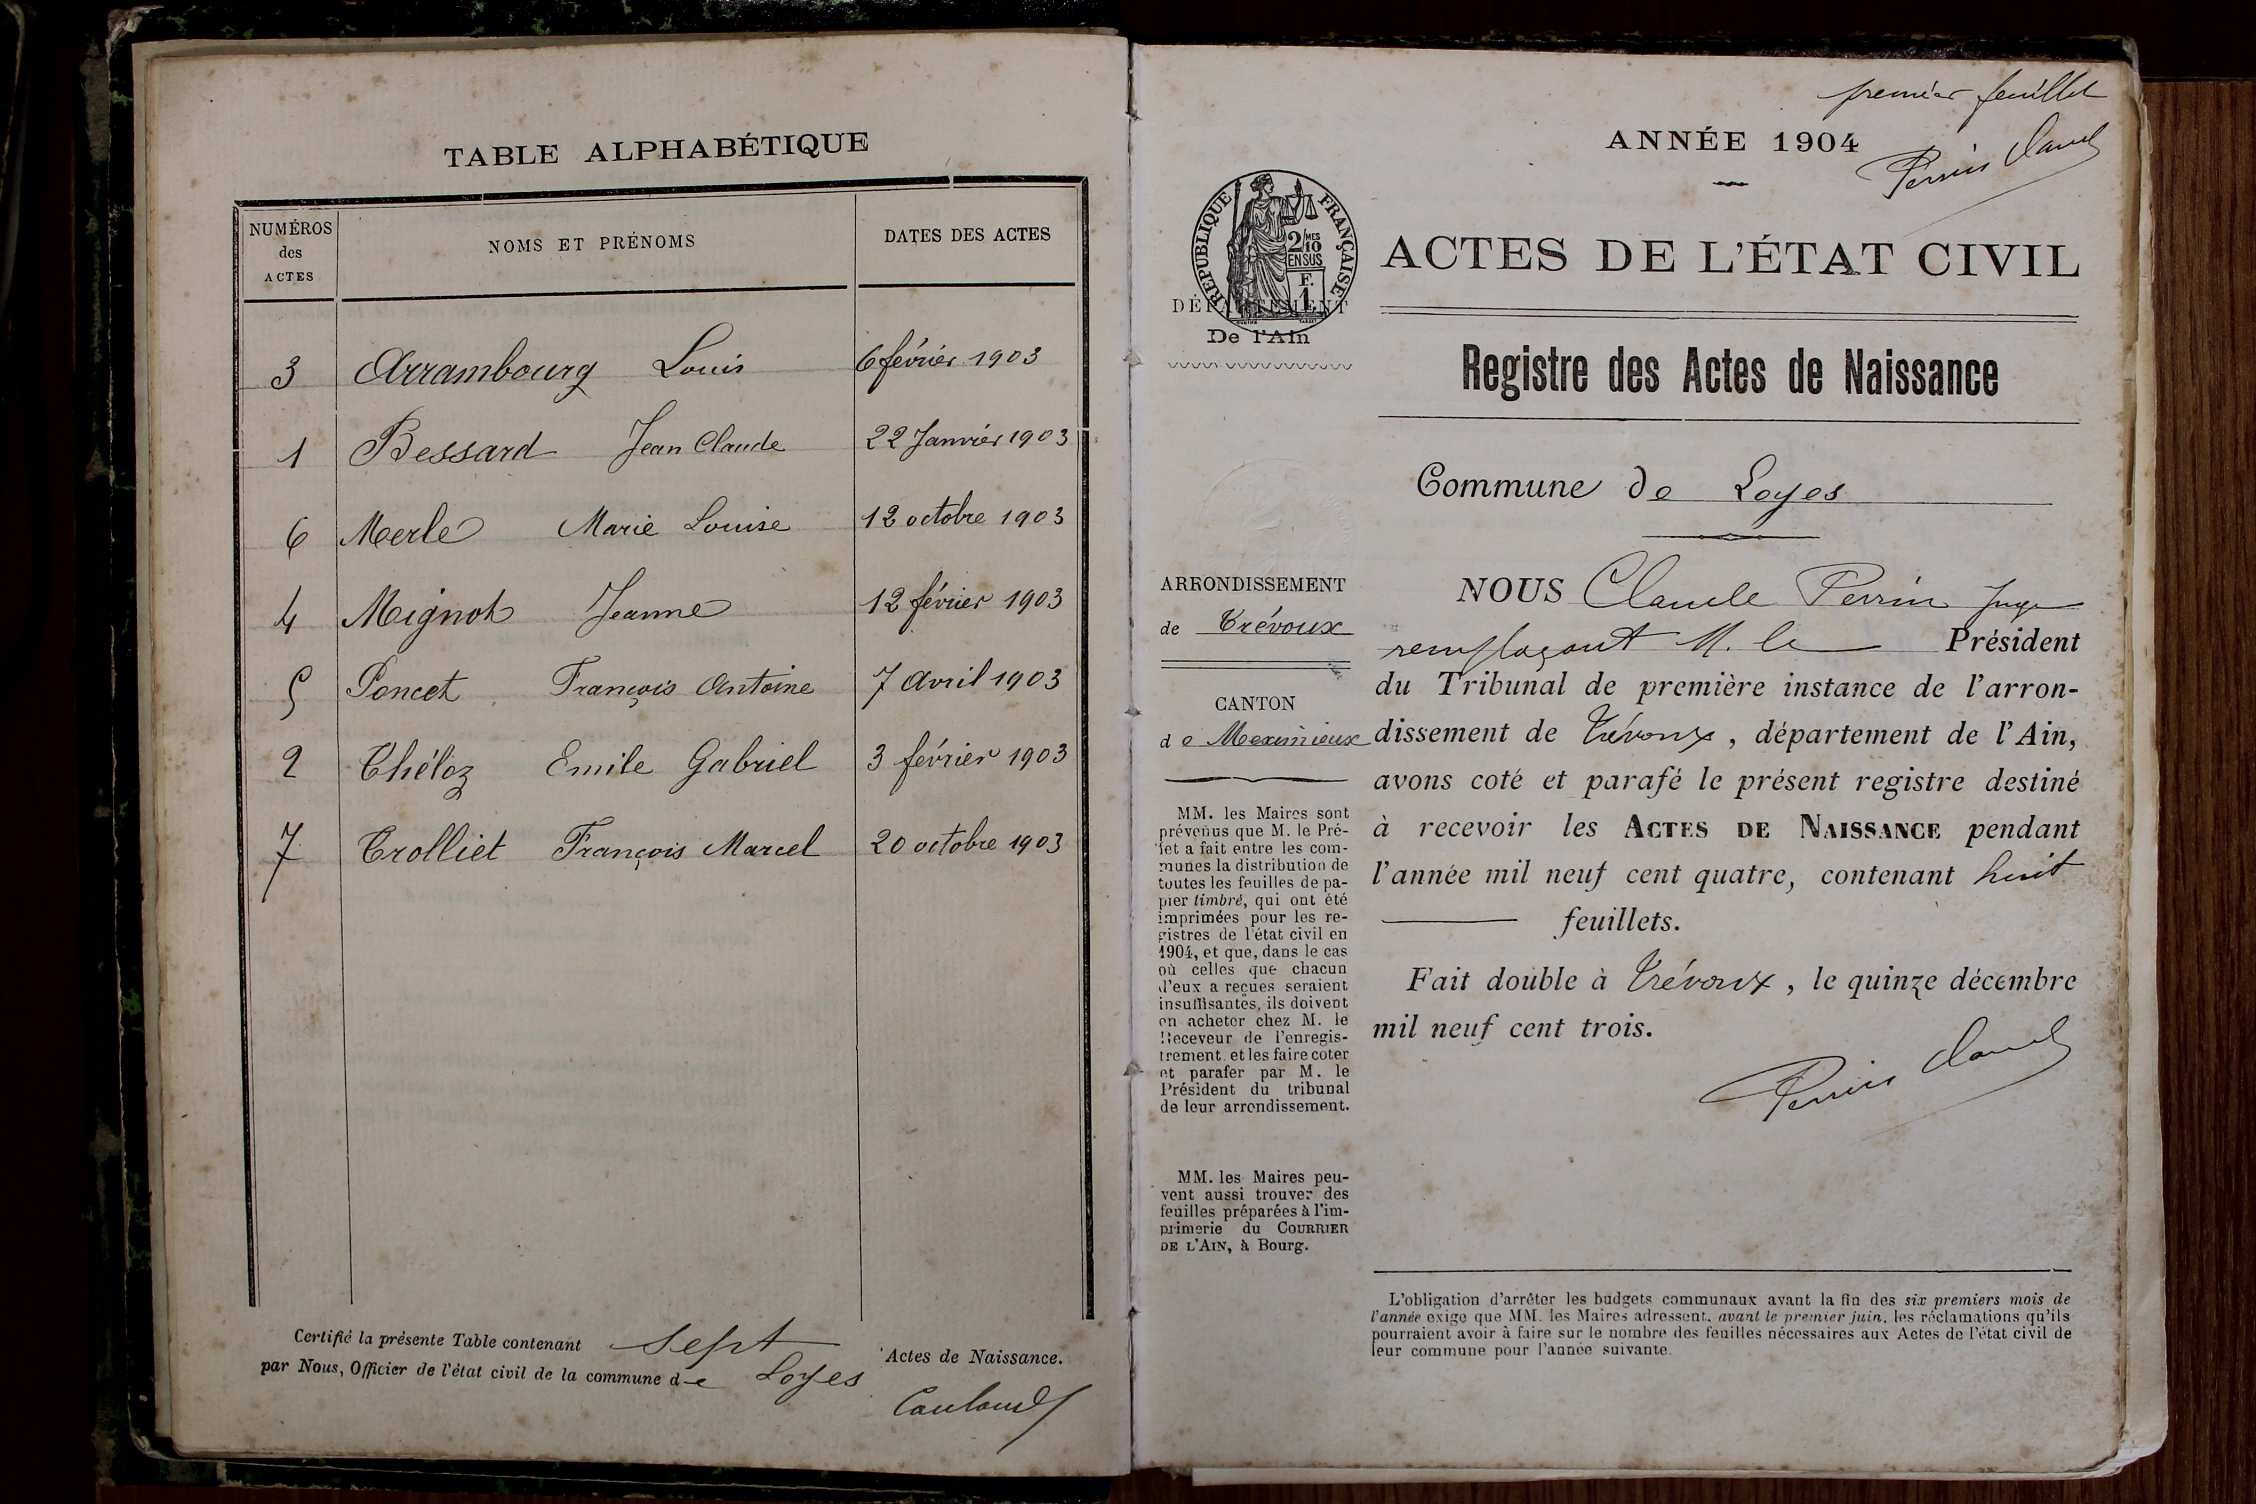 TABLE ALPHABÉTIQUE
NUMÉROS
des
ACTES
NOMS ET PRÉNOMS
DATES DES ACTES
3 Arrambourg Louis 6 février 1903
1 Bessard Jean Claude 22 Janvier 1903
6 Merle Marie Louise 12 octobre 1903
4 Mignot Jeanne 12 février 1903
5 Poncet François Antoine 7 Avril 1903
2 Chéloz Emile Gabriel 3 février 1903
7 Trolliet François Marcel 20 octobre 1903
Certifié la présente Table contenant sept Actes de Naissance.
par Nous, Officier de l'état civil de la commune de Loyes
premier feuillet
Perrin Claude
ANNÉE 1904
RÉPUBLIQUE FRANÇAISE
2/MES
10
EN SUS
F.
1
DÉPARTEMENT
De l'Ain
ACTES DE L'ÉTAT CIVIL
Registre des Actes de Naissance
Commune de Loyes
ARRONDISSEMENT
de Trévoux
CANTON
de Meximieux
MM. les Maires sont
prévenus que M. le Pré-
fet a fait entre les com-
munes la distribution de
toutes les feuilles de pa-
pier timbré, qui ont été
imprimées pour les re-
gistres de l'état civil en
1904, et que, dans le cas
où celles que chacun
d'eux a reçues seraient
insuffisantes, ils doivent
en acheter chez M. le
Receveur de l'enregis-
trement et les faire coter
et parafer par M. le
Président du tribunal
de leur arrondissement.
MM. les Maires peu-
vent aussi trouver des
feuilles préparées à l'im-
primerie du COURRIER
DE L'AIN, à Bourg.
NOUS Claude Perrin Juge
remplaçant M. le Président
du Tribunal de première instance de l'arron-
dissement de Trévoux, département de l'Ain,
avons coté et parafé le présent registre destiné
à recevoir les ACTES DE NAISSANCE pendant
l'année mil neuf cent quatre, contenant huit
feuillets.
Fait double à Trévoux, le quinze décembre
mil neuf cent trois.
Perrin Claude
L'obligation d'arrêter les budgets communaux avant la fin des six premiers mois de
l'année exige que MM. les Maires adressent, avant le premier juin, les réclamations qu'ils
pourraient avoir à faire sur le nombre des feuilles nécessaires aux Actes de l'état civil de
leur commune pour l'année suivante.